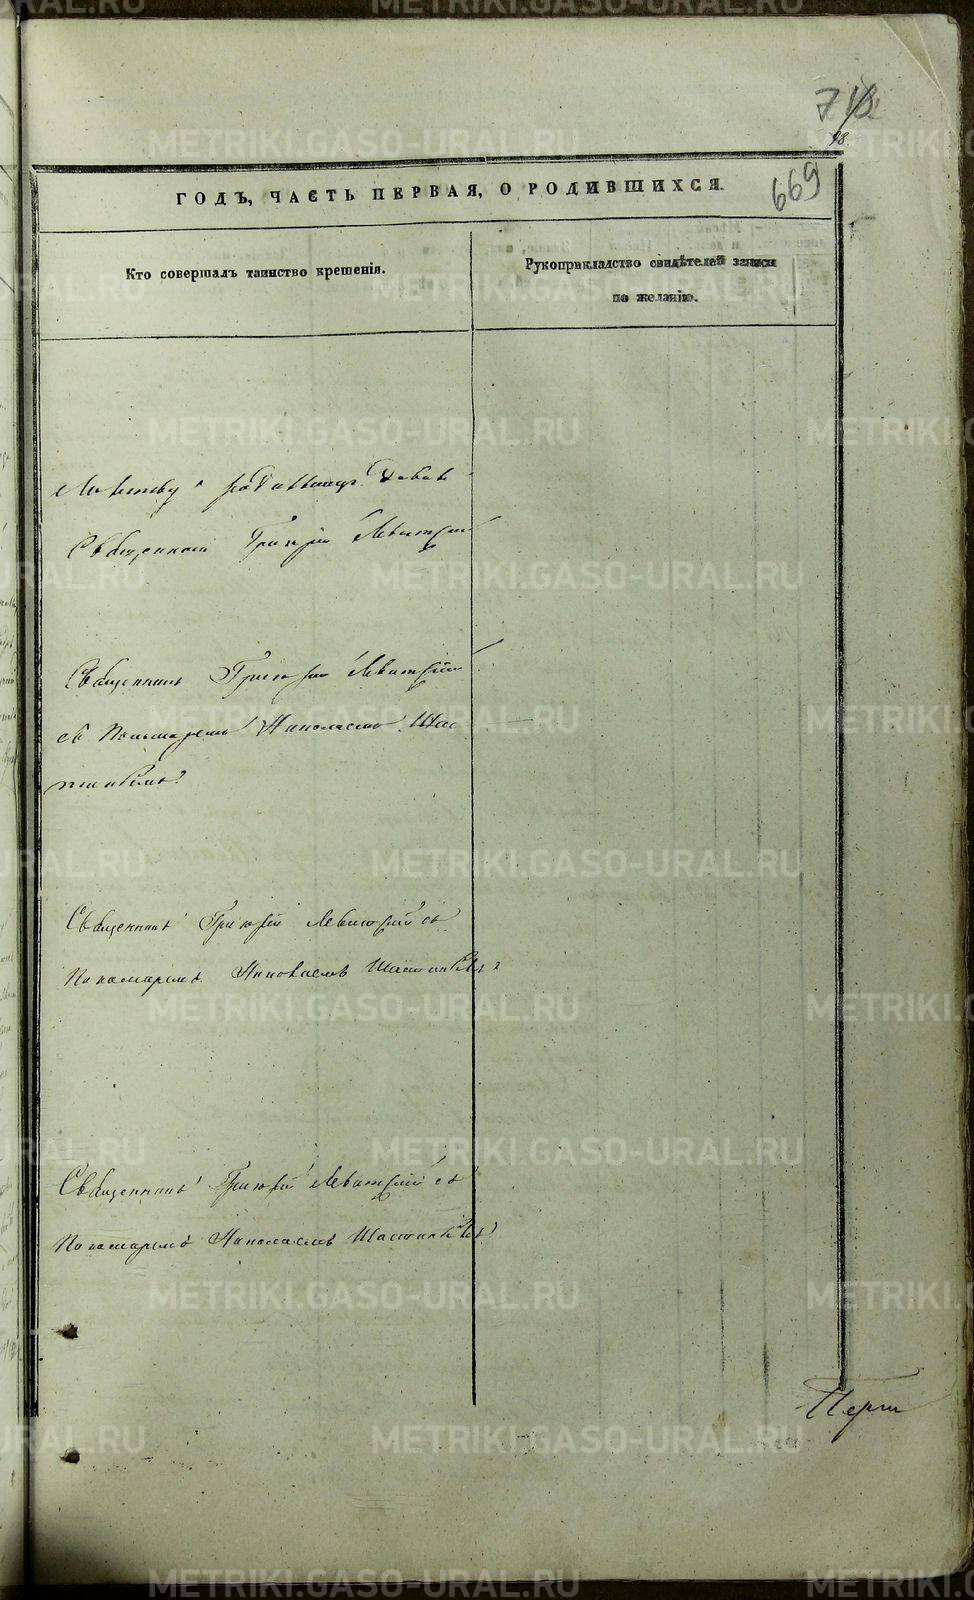 98.
669
ГОДЪ, ЧАСТЬ ПЕРВАЯ, О РОДИВШИХСЯ.
Кто совершалъ таинство крещенія.
Рукоприкладство свидѣтелей записи
по желанію.
Молитву родильницѣ давалъ
Священникъ Григорій Левитскій
Священникъ Григорій Левитскій
съ Пономаремъ Николаемъ
Священникъ Григорій Левитскій съ
Пономаремъ Николаемъ
Священникъ Григорій Левитскій съ
Пономаремъ Николаемъ
METRIKI.GASO-URAL.RU